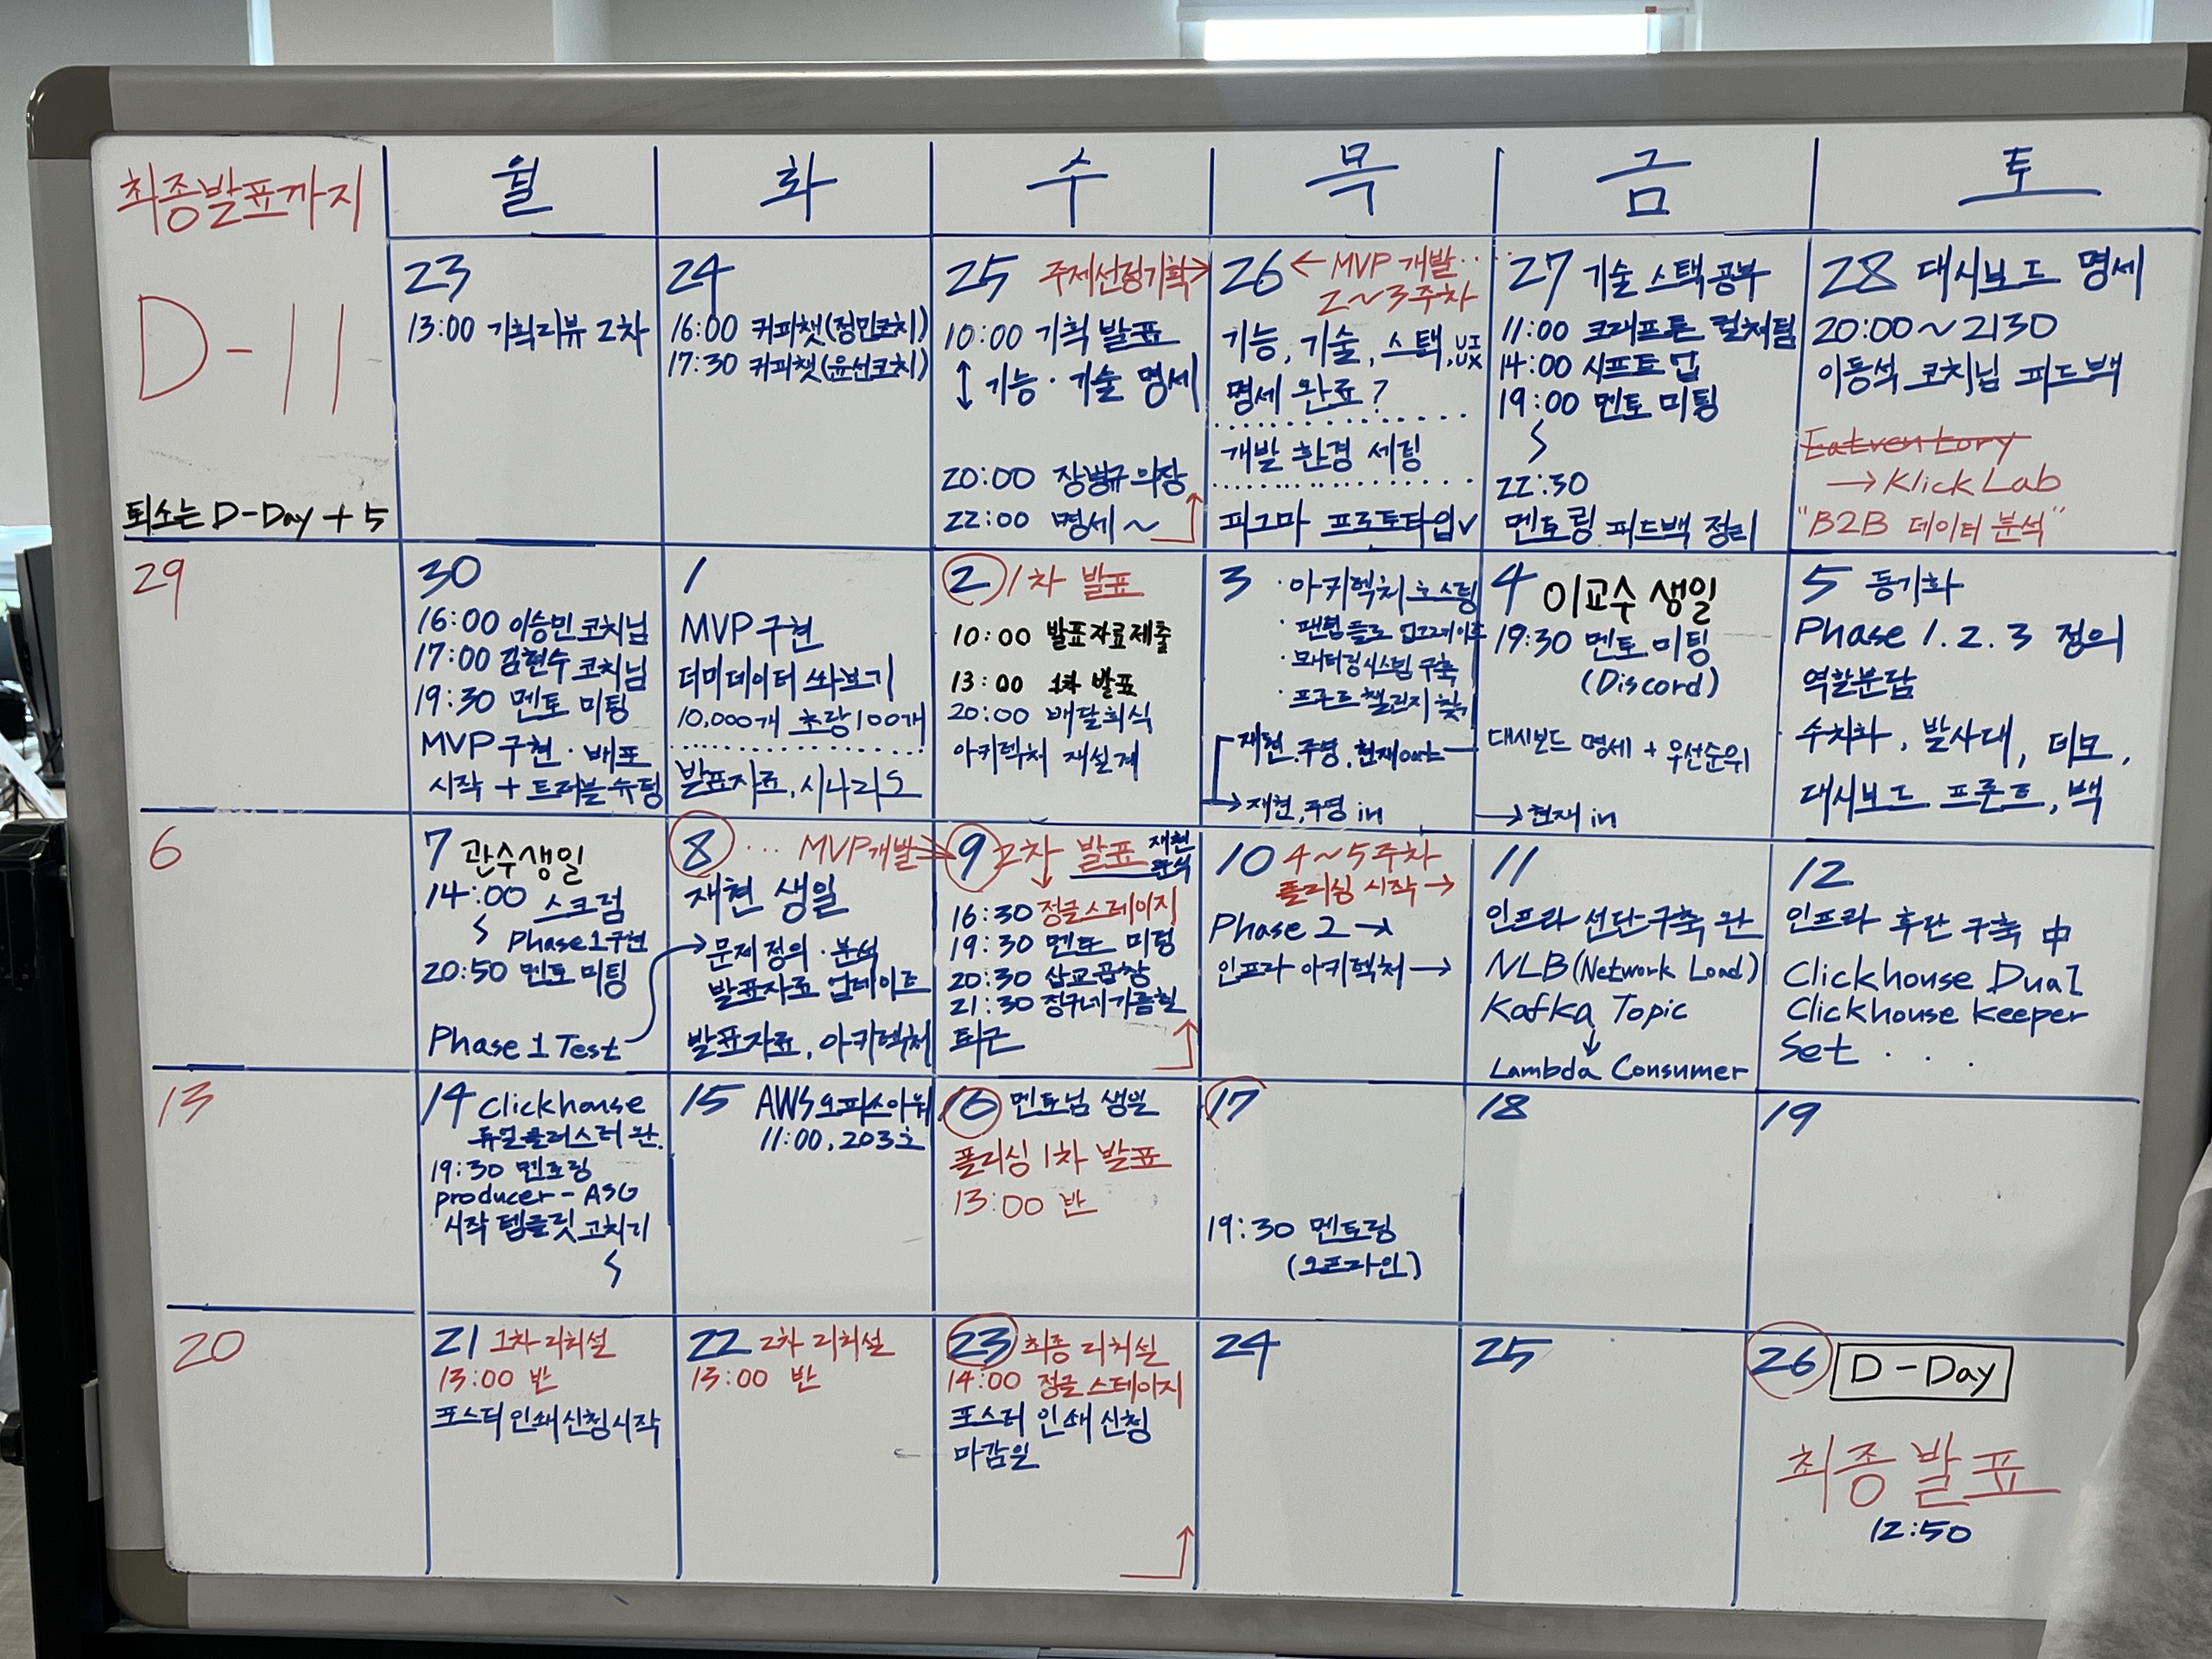 최종발표까지
D-11
퇴소는 D-Day + 5
월 화 수 목 금 토
23
13:00 기획리뷰 2차
24
16:00 커피챗(정민코치)
17:30 커피챗(윤선코치)
25 주제선정기획→
10:00 기획 발표
↕ 기능·기술 명세
20:00 장병규 의장
22:00 명세 ~
26 ← MVP 개발 ...
2~3주차
기능, 기술, 스택, UI UX
명세 완료?
개발 환경 세팅
피그마 프로토타입✓
27 기술 스택 공부
11:00 크래프톤 컬쳐팀
14:00 시프트업
19:00 멘토 미팅
22:30
멘토링 피드백 정리
28 대시보드 명세
20:00~2130
이동석 코치님 피드백
Eatventory
→ Klick Lab
"B2B 데이터 분석"
29
30
16:00 이승민 코치님
17:00 김현수 코치님
19:30 멘토 미팅
MVP 구현·배포
시작 + 트러블슈팅
1
MVP 구현
더미데이터 쏴보기
10,000개 초당 100개
발표자료, 시나리오
2 1차 발표
10:00 발표자료제출
13:00 1차 발표
20:00 배달회식
아키텍처 재설계
3 · 아키텍처 호스팅
· 플로 업그레이드
· 모니터링시스템 구축
· 프론트 챌린지 찾기
재현, 주영, 현재 out
→ 재현, 주영 in
4 이교수 생일
19:30 멘토 미팅
(Discord)
대시보드 명세 + 우선순위
→ 현재 in
5 동기화
Phase 1. 2. 3 정의
역할분담
수치화, 발사대, 데모,
대시보드 프론트, 백
6
7 관수생일
14:00 스크럼
Phase 1 구현
20:50 멘토 미팅
Phase 1 Test
8 ... MVP개발→
재현 생일
문제 정의·분석
발표자료 업데이트
발표자료, 아키텍처
9 2차 발표 재현
16:30 정글스테이지
19:30 멘토 미팅
20:30 삼교곱창
21:30
퇴근
10 4~5주차
폴리싱 시작 →
Phase 2 →
인프라 아키텍처 →
11
인프라 선단구축 완
NLB (Network Load)
Kafka Topic
↓
Lambda Consumer
12
인프라 후단 구축 中
Clickhouse Dual
Clickhouse keeper
Set . . .
13
14 Clickhouse
듀얼클러스터 완.
19:30 멘토링
producer - ASG
시작 템플릿 고치기
15 AWS오피스아워
11:00, 203호
16 멘토님 생일
폴리싱 1차 발표
13:00 반
17
19:30 멘토링
(오프라인)
18
19
20
21 1차 리허설
13:00 반
포스터 인쇄 신청 시작
22 2차 리허설
13:00 반
23 최종 리허설
14:00 정글 스테이지
포스터 인쇄 신청
마감일
24
25
26 D-Day
최종 발표
12:50